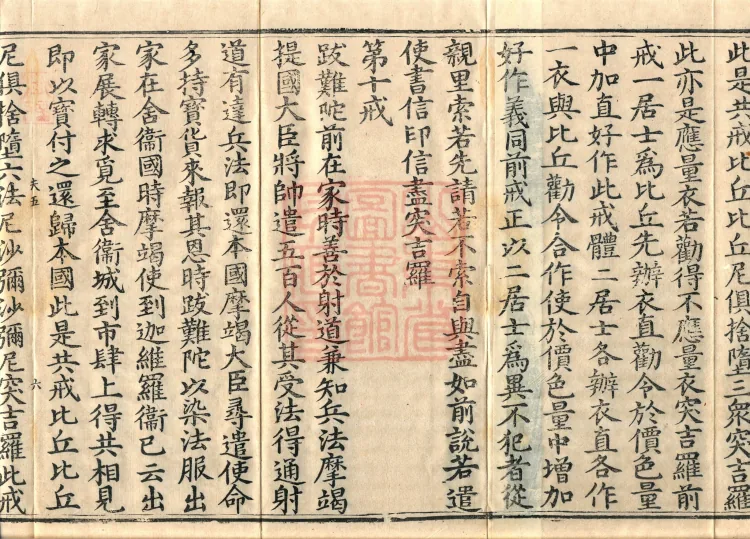 此是共戒比丘比丘尼俱捨墮三衆突吉羅
此亦是應量衣若勸得不應量衣突吉羅前
戒一居士爲比丘先辦衣直勸令於價色量
中加直好作此戒體二居士各辦衣直各作
一衣與比丘勸令合作使於價色量中增加
好作義同前戒正以二居士爲異不犯者從
親里索若先請若不索自與盡如前說若遣
使書信印信盡突吉羅
第十戒
跋難陀前在家時善於射道兼知兵法摩竭
提國大臣將帥遣五百人從其受法得通射
道有達兵法即還本國摩竭大臣尋遣使命
多持寶貨來報其恩時跋難陀以染法服出
家在舍衞國時摩竭使到迦維羅衞已云出
家展轉求覓至舍衞城到市肆上得共相見
即以寶付之還歸本國此是共戒比丘比丘
夫五
六
尼俱捨墮六法尼沙彌沙彌尼突吉羅此戒